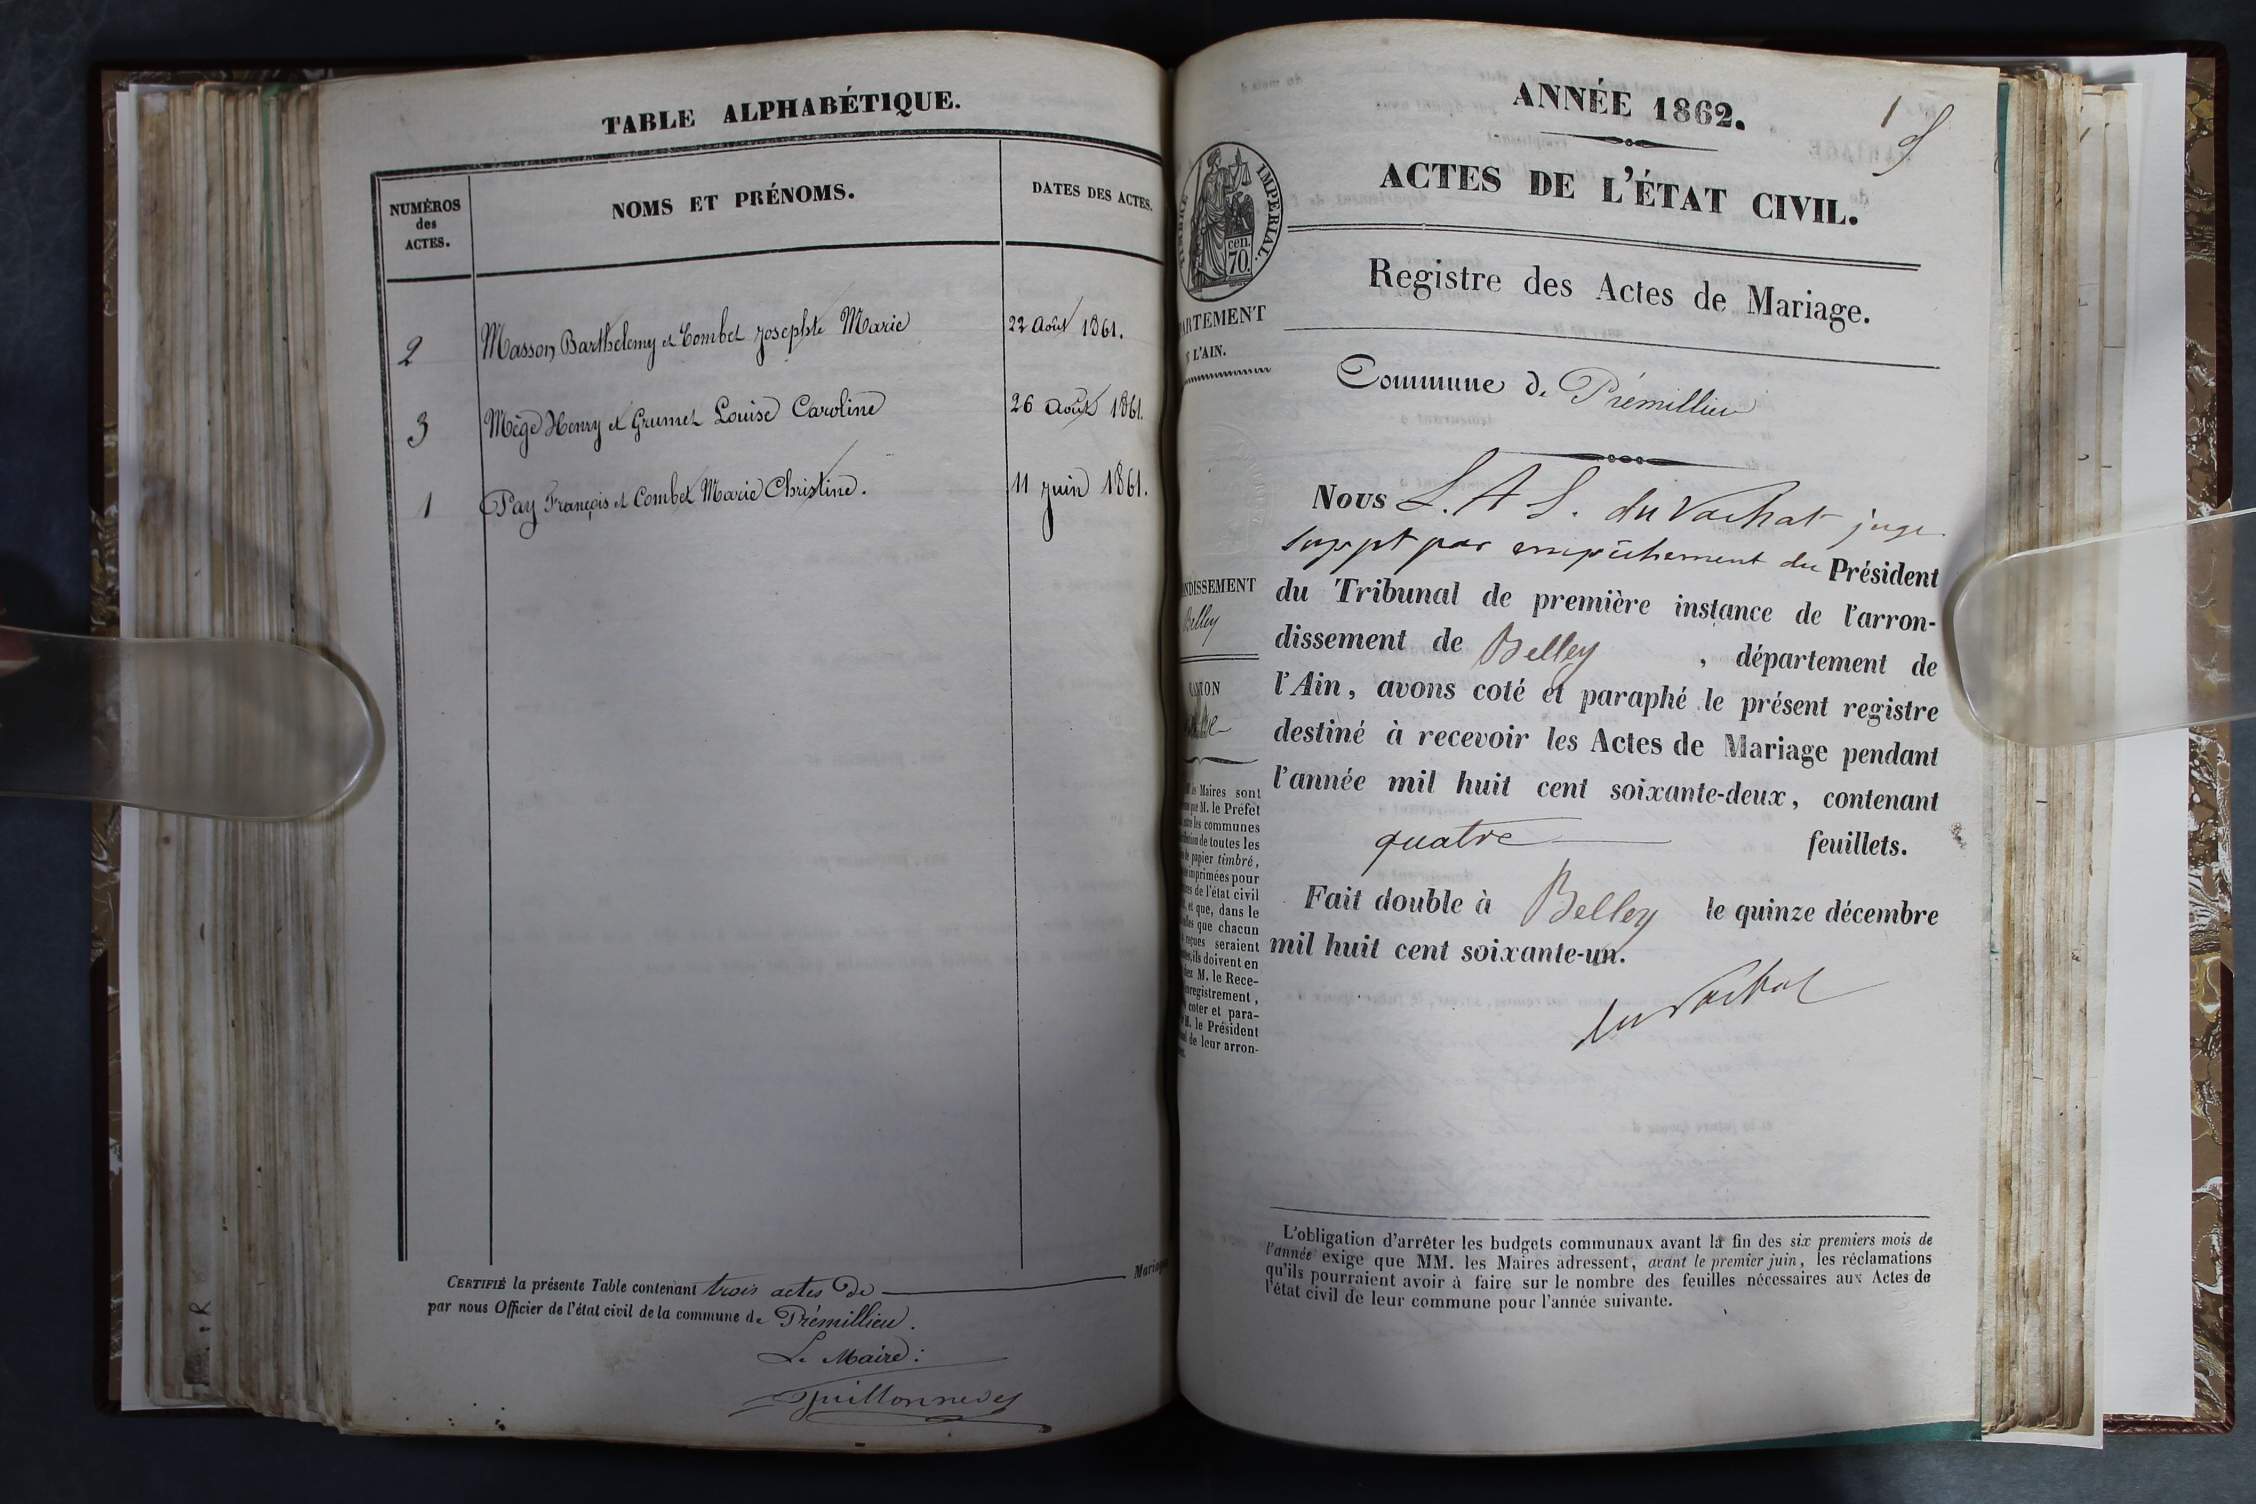 TABLE ALPHABÉTIQUE.
NUMÉROS
des
ACTES.
NOMS ET PRÉNOMS.
DATES DES ACTES.
2 Masson Barthelemy et Combet Josephte Marie 22 Août 1861.
3 Mège Henry et Grumet Louise Caroline 26 Août 1861.
1 Pay François et Combet Marie Christine. 11 Juin 1861.
CERTIFIÉ la présente Table contenant trois actes de
par nous Officier de l'état civil de la commune de Prémillieu.
Le Maire:
ANNÉE 1862.
1
ACTES DE L'ÉTAT CIVIL.
TIMBRE IMPERIAL.
cen.
70.
Registre des Actes de Mariage.
ARTEMENT
L'AIN.
Commune de Prémillieu
Nous L. A. S. du Vachat juge
suppt par empêchement du Président
du Tribunal de première instance de l'arron-
dissement de Belley, département de
l'Ain, avons coté et paraphé le présent registre
destiné à recevoir les Actes de Mariage pendant
l'année mil huit cent soixante-deux, contenant
quatre feuillets.
Fait double à Belley le quinze décembre
mil huit cent soixante-un.
du Vachat
NDISSEMENT
Belley
TON
Maires sont
que M. le Préfet
les communes
de toutes les
papier timbré,
imprimées pour
de l'état civil
et que, dans le
que chacun
seraient
ils doivent en
M. le Rece-
nregistrement,
coter et para-
le Président
de leur arron-
L'obligation d'arrêter les budgets communaux avant la fin des six premiers mois de
l'année exige que MM. les Maires adressent, avant le premier juin, les réclamations
qu'ils pourraient avoir à faire sur le nombre des feuilles nécessaires aux Actes de
l'état civil de leur commune pour l'année suivante.